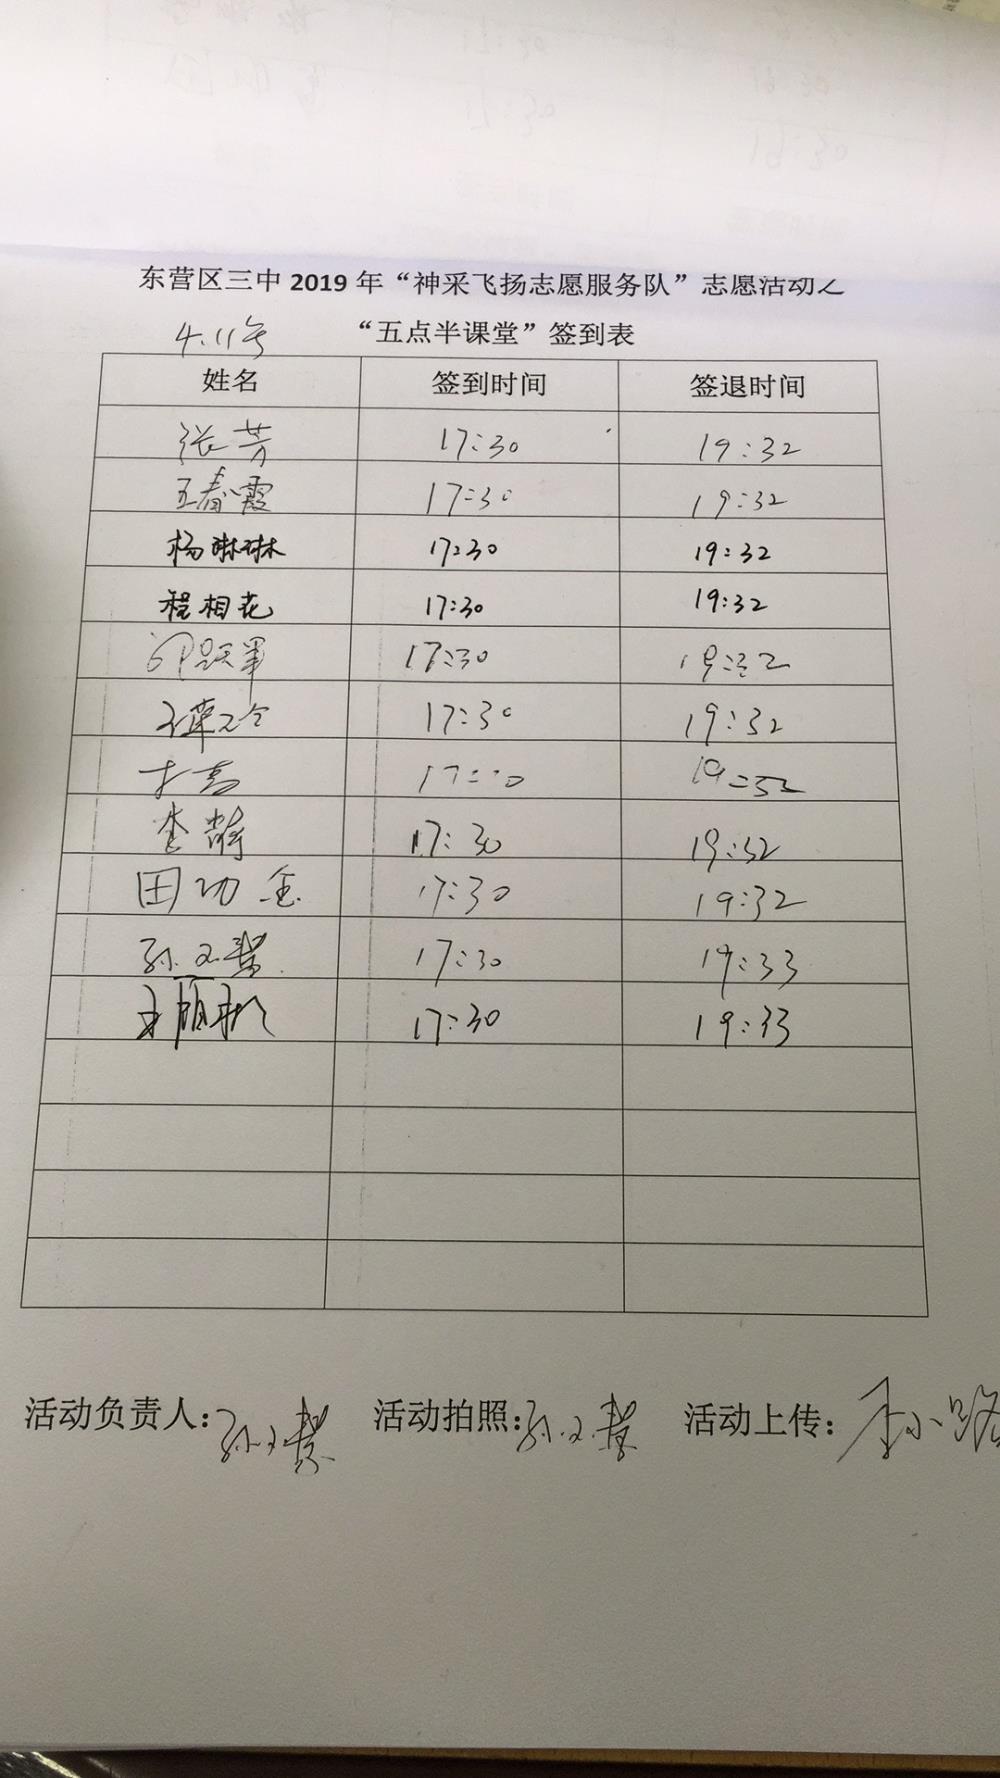 东营区三中 2019 年“神采飞扬志愿服务队”志愿活动之
4.11号 “五点半课堂”签到表
姓名 签到时间 签退时间
张芳 17:30 19:32
王春霞 17:30 19:32
杨琳琳 17:30 19:32
程相花 17:30 19:32
17:30 19:32
17:30 19:32
19:32
李萌 17:30 19:32
田功 17:30 19:32
孙文慧 17:30 19:33
17:30 19:33
活动负责人：孙文慧 活动拍照：孙文慧 活动上传：李小路